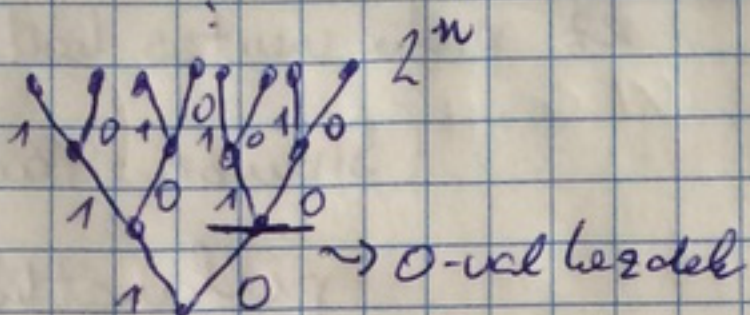 2^n
1 0 1 0 1 0 1 0
1 0 1 0
~> 0-val kezdek
1 0